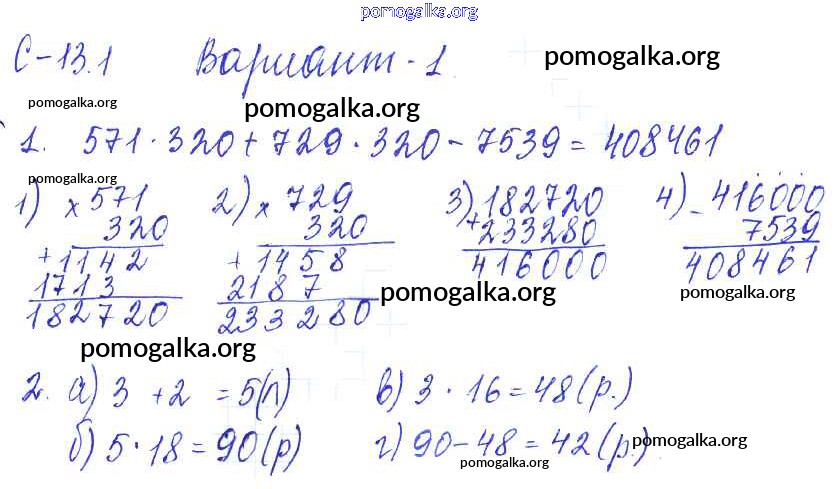 pomogalka.org
С-13.1 Вариант-1. pomogalka.org
pomogalka.org pomogalka.org
1. 571·320+729·320-7539=408461
pomogalka.org
1) × 571 2) × 729 3) + 182720 4) - 416000
320 320 233280 7539
+ 1142 + 1458 416000 408461
1713 2187 pomogalka.org pomogalka.org
182720 233280
pomogalka.org
2. а) 3 + 2 = 5(п) в) 3 · 16 = 48 (р.)
б) 5 · 18 = 90 (р) г) 90-48 = 42 (р.) pomogalka.org
pomogalka.org